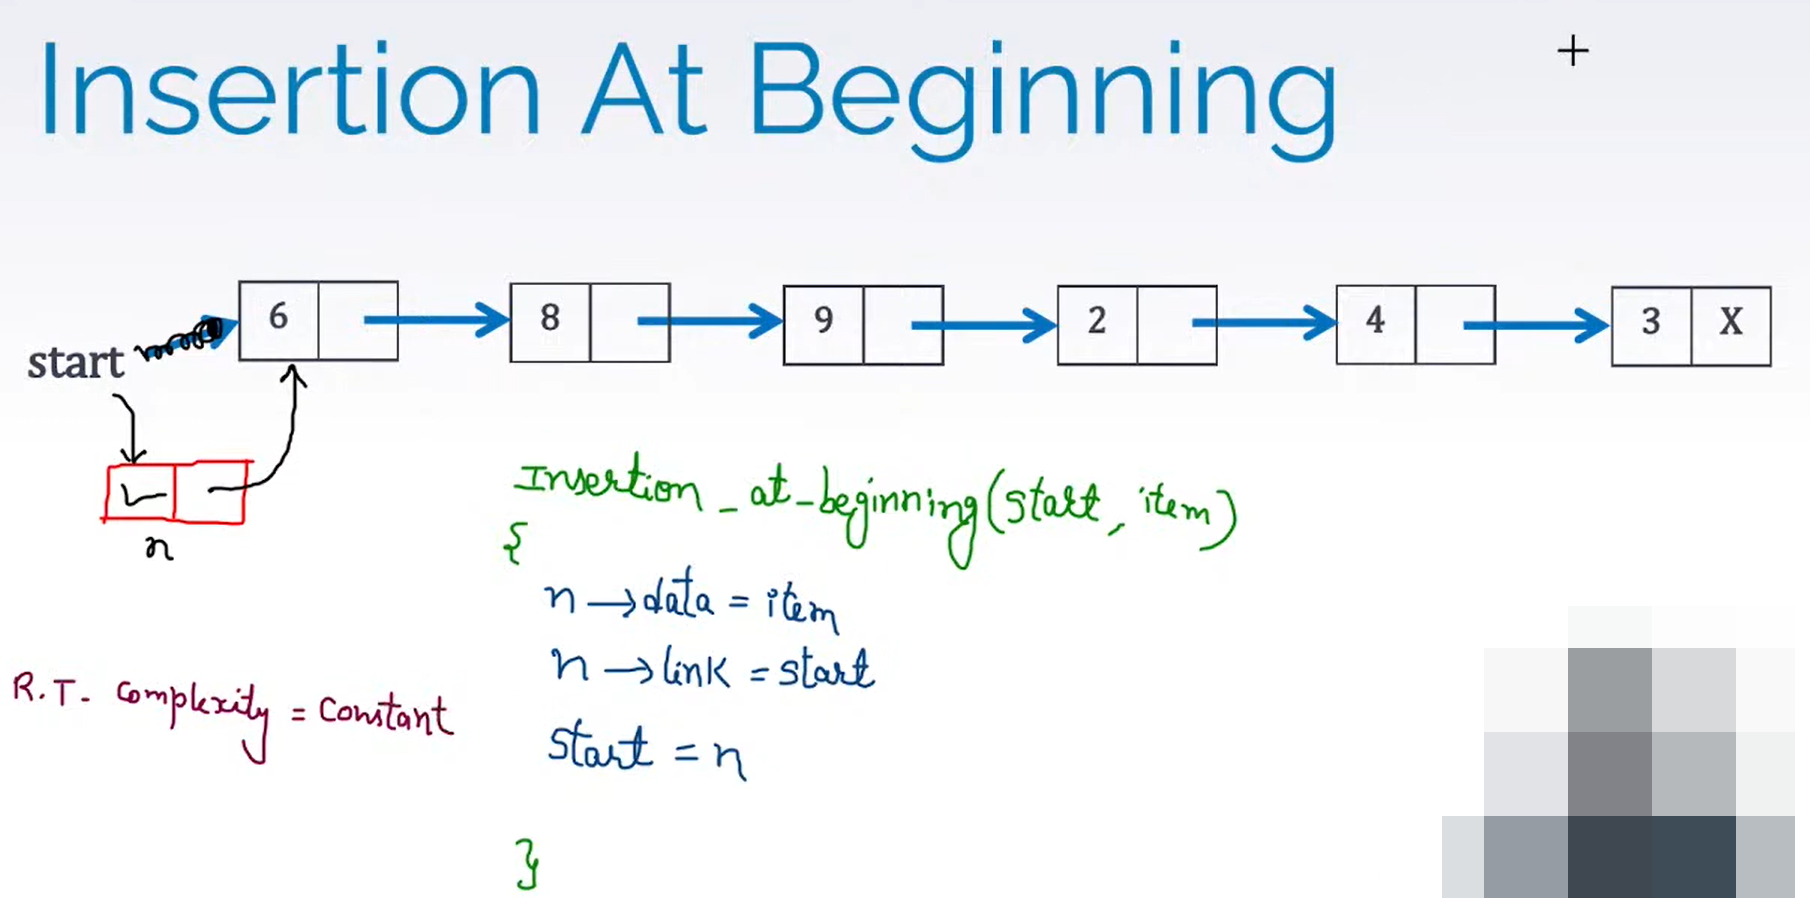 Insertion At Beginning
start 6 8 9 2 4 3 X
n
Insertion_at_beginning(start, item)
{
n→data = item
n→link = start
R.T. Complexity = Constant
start = n
}